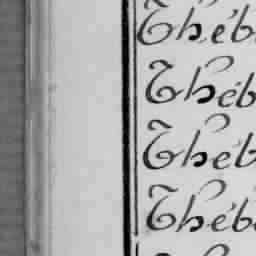 Théb
Théb
Théb
Théb